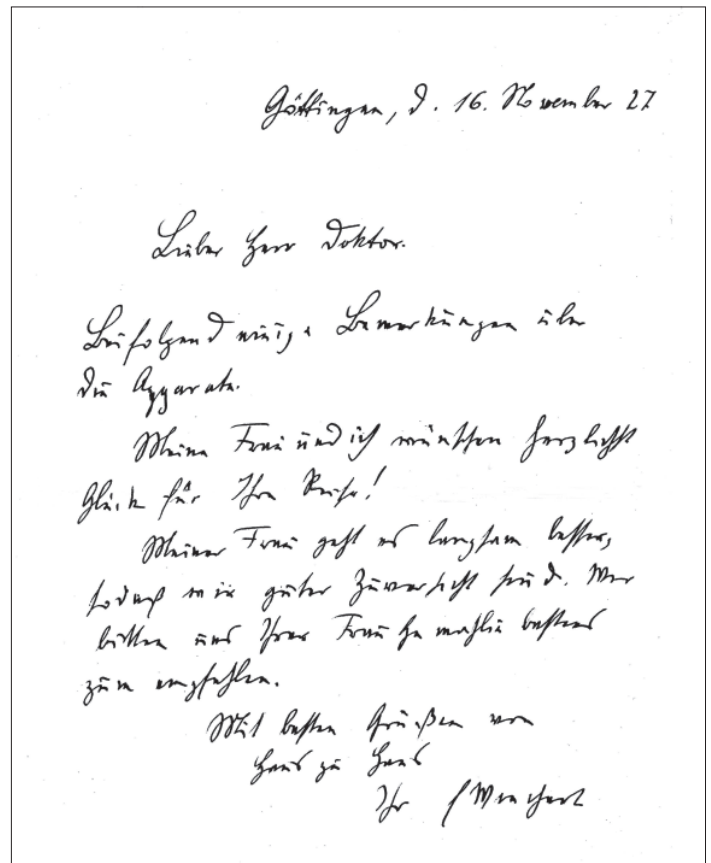 Göttingen, d. 16. November 27
Lieber Herr Doktor.
Beifolgend einige Bemerkungen über
die Apparate.
Meine Frau und ich wünschen herzlichst
Glück für Ihre Reise!
Meiner Frau geht es langsam besser,
sodass wir guter Zuversicht sind. Wir
bitten uns Ihrer Frau Gemahlin bestens
zum empfehlen.
Mit besten Grüßen von
Haus zu Haus
Ihr EWiechert